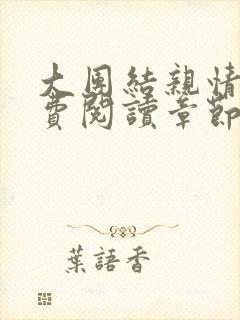 大團結親情
費閱讀章節
葉語香